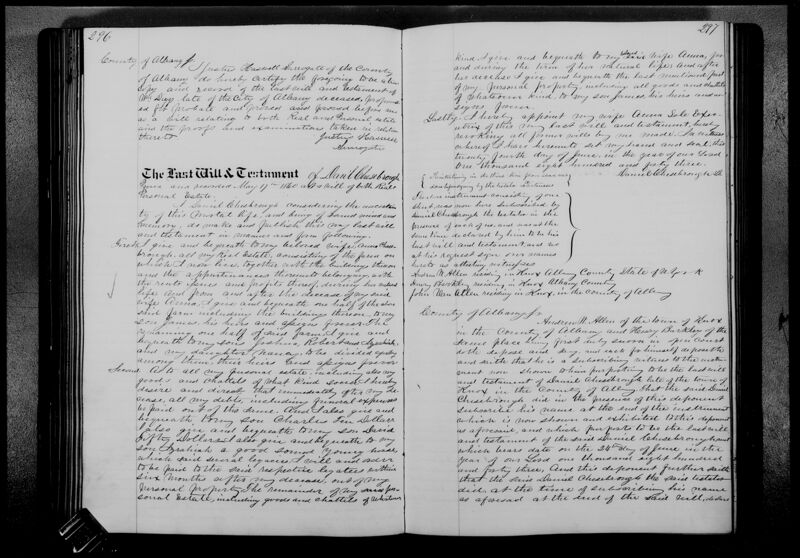 296
County of Albany Ss
I Justus Haswell Surrogate of the County
of Albany do hereby certify the foregoing to be a true
copy and record of the last will and testament of
Wm Gay late of the City of Albany deceased, propound
ed for probate and proved and
as a will relating to both Real and Personal estate
and the proofs and examinations taken in relation
thereto
Justus Haswell
Surrogate
The Last Will & Testament of Daniel Chesebrough
and recorded May 11th as a will of both Real &
Personal Estate.
I Daniel Chesebrough considering the uncertain
ty of this mortal life, and being of sound mind and
memory, do make and publish this my last will
and testament in manner and form following.
First I give and bequeath to my beloved wife Anna Chese
brough, all my Real Estate, consisting of the farm on
which I now live, together with the buildings thereon
and the appurtenances thereunto belonging, with
the rents issues and profits thereof, during her natural
life And from and after the decease of my said
wife Anna, I give and bequeath one half of the
said farm including the buildings thereon, to my
son James, his heirs and assigns forever. The
remaining one half of said farm, I give and
bequeath to my sons Joshua, Robert and Izrahiah,
and my daughter Nancy, to be divided equally
among them, their heirs and assigns forever
Second As to all my personal estate, including also my
goods and chattels of what kind soever I hereby
desire and direct that immediately after my de
cease, all my debts, including funeral expenses
be paid out of the same. And I also give and
bequeath to my son Charles Ten Dollars
I also give and bequeath to my son David
Fifty Dollars. I also give and bequeath to my
son Izrahiah a good sound young horse
which said several legacies I will and order
to be paid to the said respective legatees within
Six months after my decease, out of my
personal property. The remainder of my said per
sonal Estate, including goods and chattels of whatever
297
kind, I give and bequeath to my said wife Anna, for
and during the term of her natural life. And after
her decease I give and bequeath the last mentioned part
of my personal property, including all goods and chattels
of whatever kind, to my son James, his heirs and as
signs forever.
Lastly. I hereby appoint my wife Anna Sole Execu
trix of this my last will and testament, hereby
revoking all former wills by me made. In witness
whereof I have hereunto set my hand and seal, this
twenty fourth day of June, in the year of our Lord
One thousand eight hundred and forty three.
Daniel Chesebrough LS
The above instrument consisting of one
sheet, was now here subscribed by
Daniel Chesebrough the testator in the
presence of each of us, and was at the
same time declared by him to be his
last will and testament, and we
at his request sign our names
hereto as attesting witnesses
Andrew M. Allen residing in Knox Albany County State of N York
Henry Barkley residing in Knox Albany County
John Allen residing in Knox, in the County of Albany
County of Albany Ss
Andrew M. Allen of the town of Knox
in the County of Albany, and Henry Barkley of the
same place being first duly sworn in open Court
doth depose and say, and each for himself deposeth
and saith that he is a subscribing witness to the instru
ment now shown to him purporting to be the last will
and testament of Daniel Chesebrough late of the town of
Knox in the County of Albany, that the said Daniel
Chesebrough did in the presence of this deponent
subscribe his name at the end of the instrument
which is now shown and exhibited to this deponent
as aforesaid, and which purports to be the last will
and testament of the said Daniel Chesebrough and
which bears date on the 24th day of June in the
year of our Lord one thousand eight hundred
and forty three. And this deponent further saith
that the said Daniel Chesebrough the said testator
did, at the time of subscribing his name
as aforesaid at the end of the said will, declare